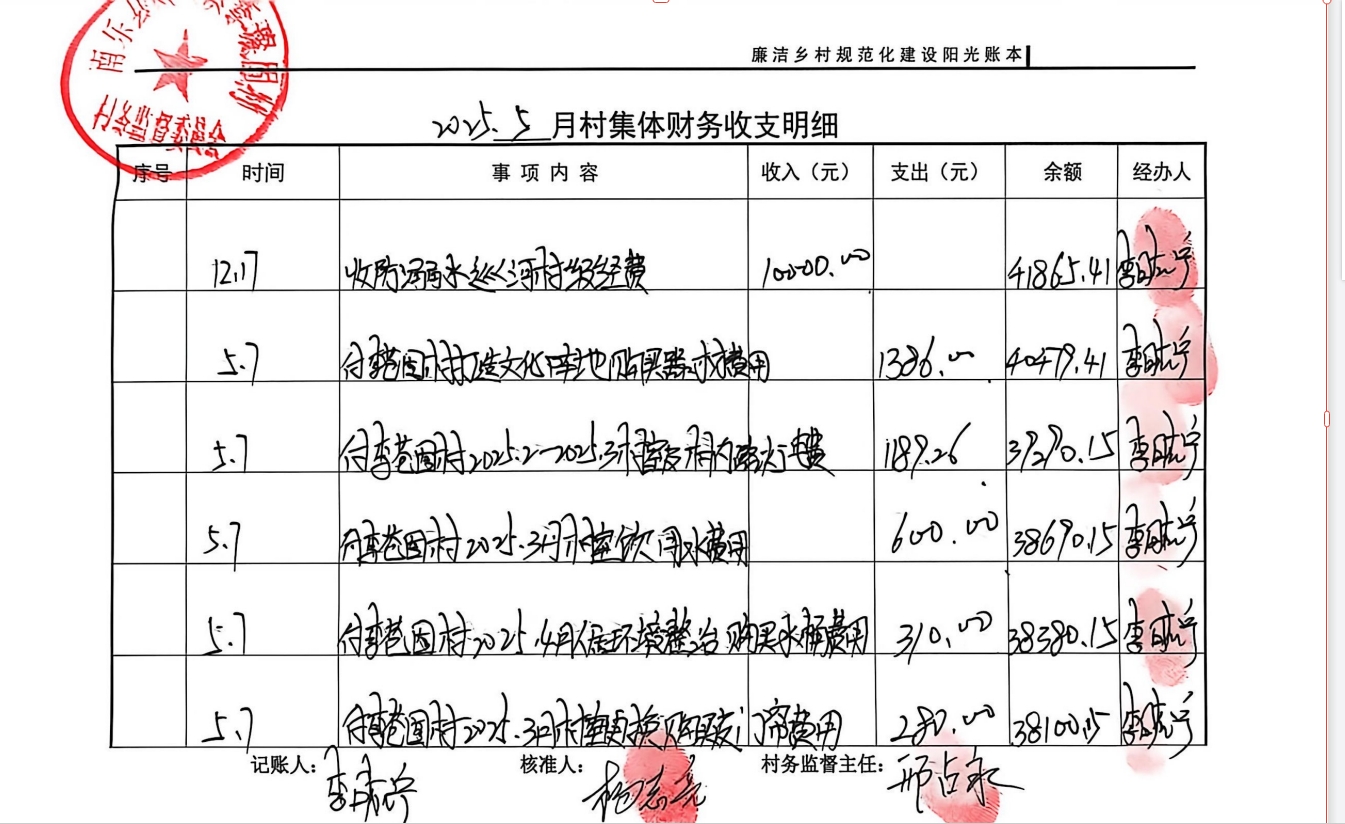 廉洁乡村规范化建设阳光账本
2025.5月村集体财务收支明细
序号 时间 事项内容 收入（元） 支出（元） 余额 经办人
12.17 收防溺水巡河村级经费 10000.00 41865.41
5.7 付李范围村打造文化阵地购买器材费用 1386.00 40479.41
5.7 付李范围村2025.2-2025.3村室及村内路灯电费 1189.26 39290.15
5.7 付李范围村2025.3月村室饮用水费用 600.00 38690.15
5.7 付李范围村2025.4月人居环境整治购买水桶费用 310.00 38380.15
5.7 付李范围村2025.3月村室更换购买门帘费用 280.00 38100.15
记账人： 核准人：杨志亮 村务监督主任：邢占永
村务监督委员会